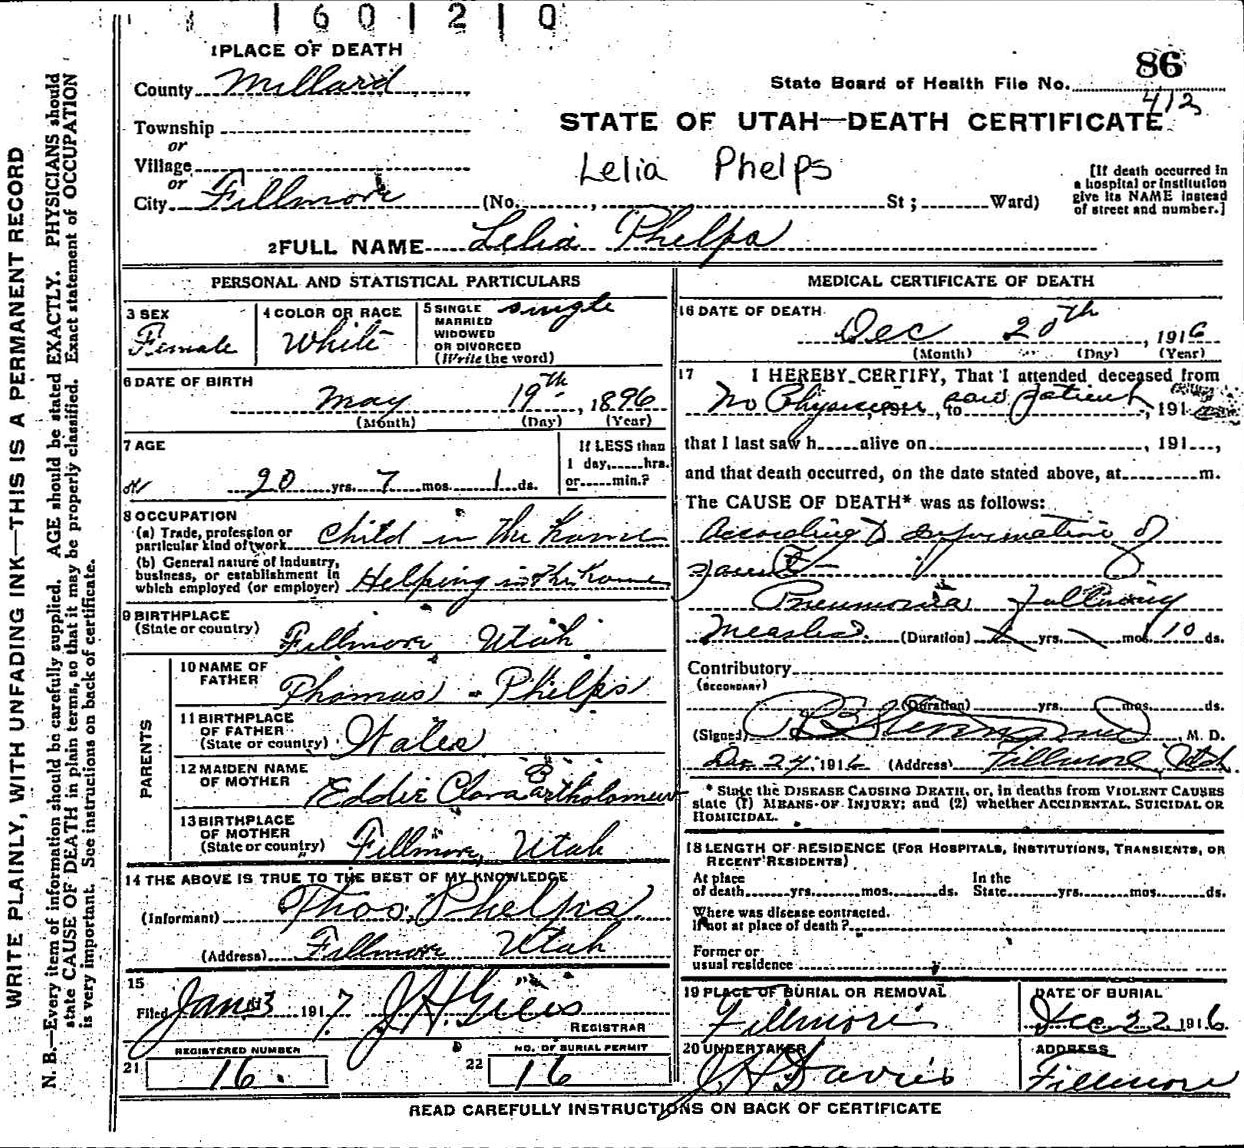 1 6 0 1 2 1 0
1 PLACE OF DEATH
County Millard
Township
or
Village
or
City Fillmore
86
State Board of Health File No.
412
STATE OF UTAH—DEATH CERTIFICATE
Lelia Phelps
(No. , St ; Ward)
[If death occurred in a hospital or institution give its NAME instead of street and number.]
2 FULL NAME Lelia Phelps
PERSONAL AND STATISTICAL PARTICULARS
3 SEX
Female
4 COLOR OR RACE
White
5 SINGLE MARRIED WIDOWED OR DIVORCED (Write the word)
single
6 DATE OF BIRTH
May 19th, 1896
(Month) (Day) (Year)
7 AGE
20 yrs. 7 mos. 1 ds.
If LESS than 1 day, hrs. or min.?
8 OCCUPATION
(a) Trade, profession or particular kind of work Child in The Home
(b) General nature of industry, business, or establishment in which employed (or employer) Helping in The Home
9 BIRTHPLACE
(State or country) Fillmore Utah
PARENTS
10 NAME OF FATHER Thomas Phelps
11 BIRTHPLACE OF FATHER (State or country) Wales
12 MAIDEN NAME OF MOTHER Eddie Clara Bartholomew
13 BIRTHPLACE OF MOTHER (State or country) Fillmore, Utah
14 THE ABOVE IS TRUE TO THE BEST OF MY KNOWLEDGE
(Informant) Thos. Phelps
(Address) Fillmore Utah
15
Filed Jan 3 1917 J. H. Giles
REGISTRAR
REGISTERED NUMBER
21 16.
NO. OF BURIAL PERMIT
22 16
MEDICAL CERTIFICATE OF DEATH
16 DATE OF DEATH
Dec 20th, 1916
(Month) (Day) (Year)
17 I HEREBY CERTIFY, That I attended deceased from
No Physician, to saw patient, 191
that I last saw h alive on , 191 ,
and that death occurred, on the date stated above, at m.
The CAUSE OF DEATH* was as follows:
According to information of
Pneumonia following
Measles. (Duration) yrs. mos. 10 ds.
Contributory
(SECONDARY)
(Duration) yrs. mos. ds.
(Signed) M. D.
Dec 24, 1916 (Address) Fillmore, Utah
* State the DISEASE CAUSING DEATH, or, in deaths from VIOLENT CAUSES state (1) MEANS OF INJURY; and (2) whether ACCIDENTAL, SUICIDAL OR HOMICIDAL.
18 LENGTH OF RESIDENCE (FOR HOSPITALS, INSTITUTIONS, TRANSIENTS, OR RECENT RESIDENTS)
At place of death yrs. mos. ds. In the State yrs. mos. ds.
Where was disease contracted, if not at place of death?
Former or usual residence
19 PLACE OF BURIAL OR REMOVAL
Fillmore
DATE OF BURIAL
Dec 22 1916
20 UNDERTAKER
J H Davies
ADDRESS
Fillmore
READ CAREFULLY INSTRUCTIONS ON BACK OF CERTIFICATE
WRITE PLAINLY, WITH UNFADING INK—THIS IS A PERMANENT RECORD
N. B.—Every item of information should be carefully supplied. AGE should be stated EXACTLY. PHYSICIANS should
state CAUSE OF DEATH in plain terms, so that it may be properly classified. Exact statement of OCCUPATION
is very important. See instructions on back of certificate.